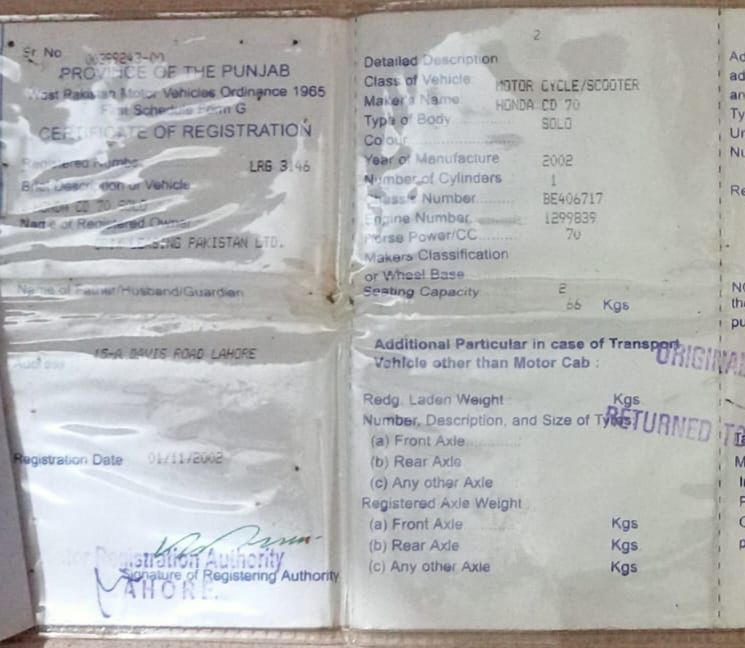 Sr. No 00399243-00
PROVINCE OF THE PUNJAB
West Pakistan Motor Vehicles Ordinance 1965
First Schedule Form G
CERTIFICATE OF REGISTRATION
Registered Number LRG 3146
Brief Description of Vehicle
HONDA CD 70 SOLO
Name of Registered Owner
LEASING PAKISTAN LTD.
Name of Father/Husband/Guardian
Address 15-A DAVIS ROAD LAHORE
Registration Date 01/11/2002
Motor Registration Authority
Signature of Registering Authority
LAHORE.
2
Detailed Description
Class of Vehicle MOTOR CYCLE/SCOOTER
Maker's Name HONDA CD 70
Type of Body SOLO
Colour
Year of Manufacture 2002
Number of Cylinders 1
Chassis Number BE406717
Engine Number 1299839
Horse Power/CC 70
Makers Classification
or Wheel Base
Seating Capacity 2
66 Kgs
Additional Particular in case of Transport
Vehicle other than Motor Cab :
ORIGINAL
Redg. Laden Weight Kgs
Number, Description, and Size of Tyres
RETURNED TO
(a) Front Axle
(b) Rear Axle
(c) Any other Axle
Registered Axle Weight
(a) Front Axle Kgs
(b) Rear Axle Kgs
(c) Any other Axle Kgs